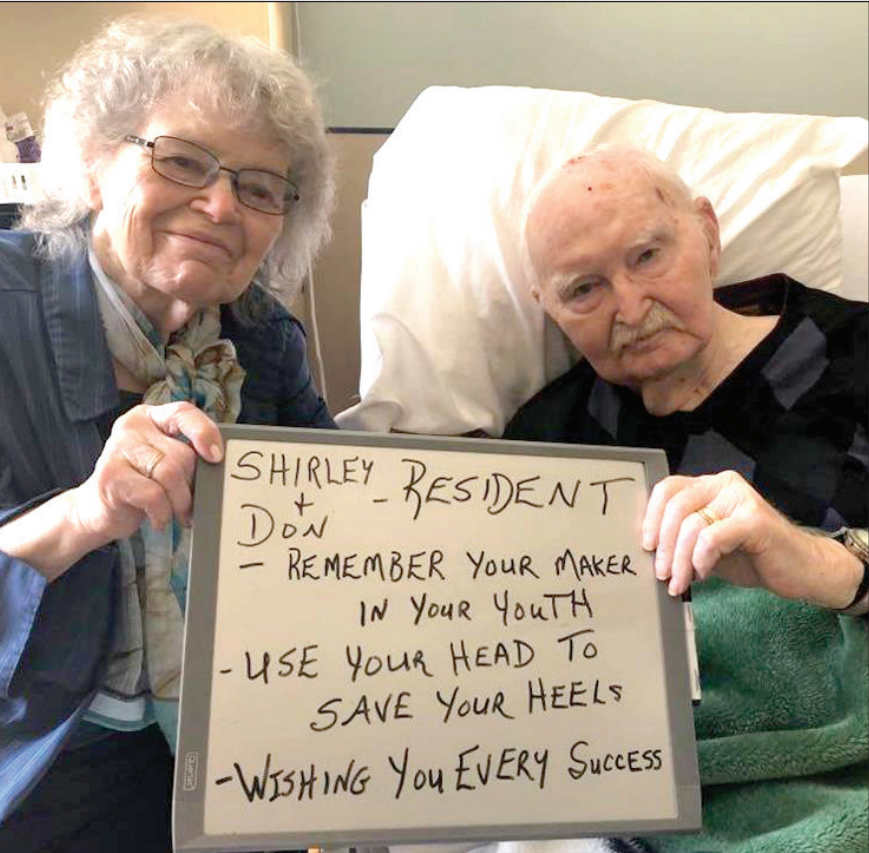 SHIRLEY
+
DON
- RESIDENT
- REMEMBER YOUR MAKER
IN YOUR YOUTH
- USE YOUR HEAD TO
SAVE YOUR HEELS
- WISHING YOU EVERY SUCCESS
Quartet